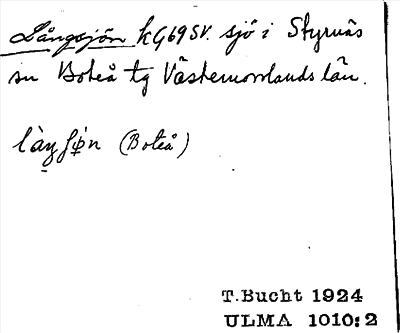 Långsjön kG69SV. sjö i Styrnäs
sn Boteå tg Västernorrlands län.
(Boteå)
T.Bucht 1924
ULMA 1010:2